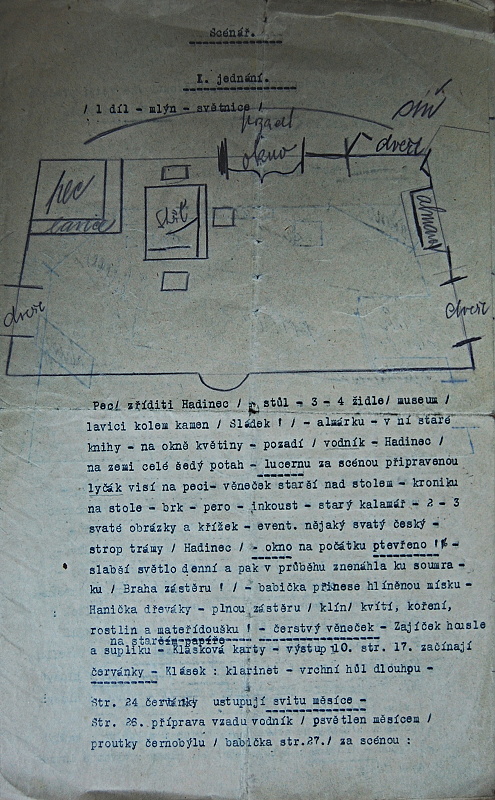 Scénář.
I. jednání.
/ 1 díl - mlýn - světnice /
síň
pozadí
okno
dveře
pec
lavice
stůl
almara
dveře
dveře
Pec/ zříditi Hadinec / - stůl - 3 - 4 židle/ museum /
lavici kolem kamen / Sládek ! / - almárku - v ní staré
knihy - na okně květiny - pozadí / vodník - Hadinec /
na zemi celé šedý potah - lucernu za scénou připravenou
lyčák visí na peci- věneček starší nad stolem - kroniku
na stole - brk - pero - inkoust - starý kalamář - 2 - 3
svaté obrázky a křížek - event. nějaký svatý český -
strop trámy / Hadinec / - okno na počátku ptevřeno ! -
slabší světlo denní a pak v průběhu znenáhla ku soumra -
ku / Braha zástěru ! / - babička přinese hlíněnou mísku -
Hanička dřeváky - plnou zástěru / klín/ kvítí, koření,
rostlin a mateřídoušku ! - čerstvý věneček - Zajíček housle
na starém papíře
a supliku - Klásková karty - výstup 10. str. 17. začínají
červánky - Klásek : klarinet - vrchní hůl dlouhou -
Str. 24 červánky ustupují svitu měsíce -
Str. 26. příprava vzadu vodník / psvětlen měsícem /
proutky černobýlu / babička str.27./ za scénou :